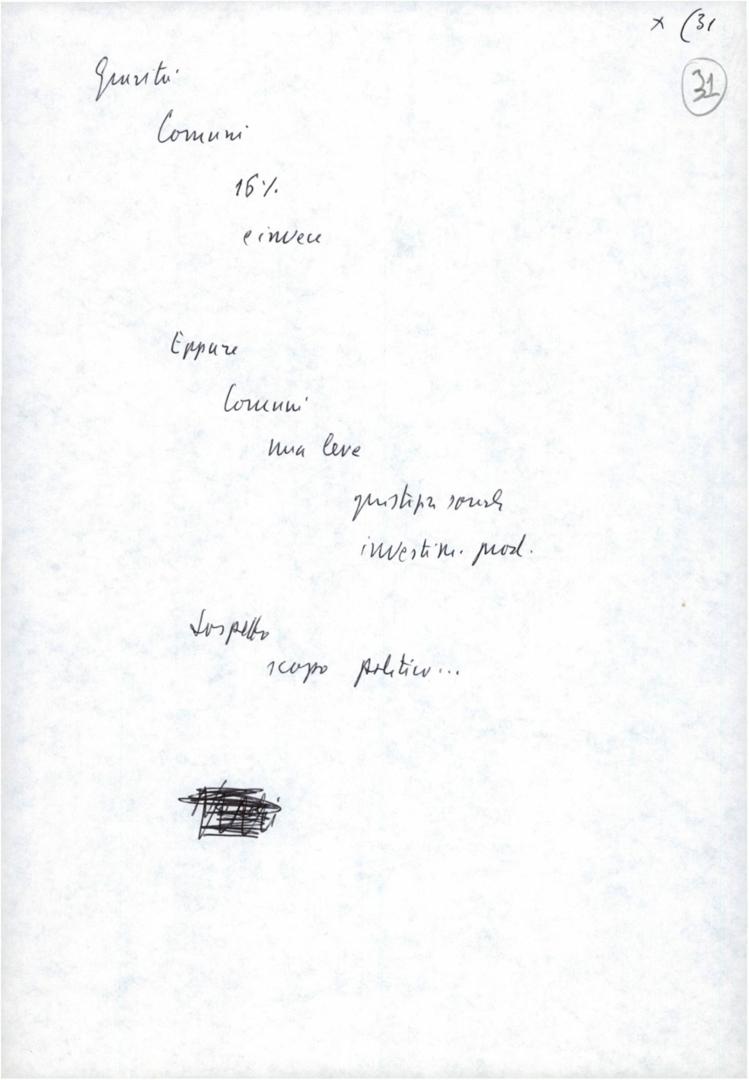 x (31
31
Gravità
Comuni
16%
e invece
Eppure
Comuni
una leva
giustizia sociale
investim. prod.
Sospetto
scopo politico...